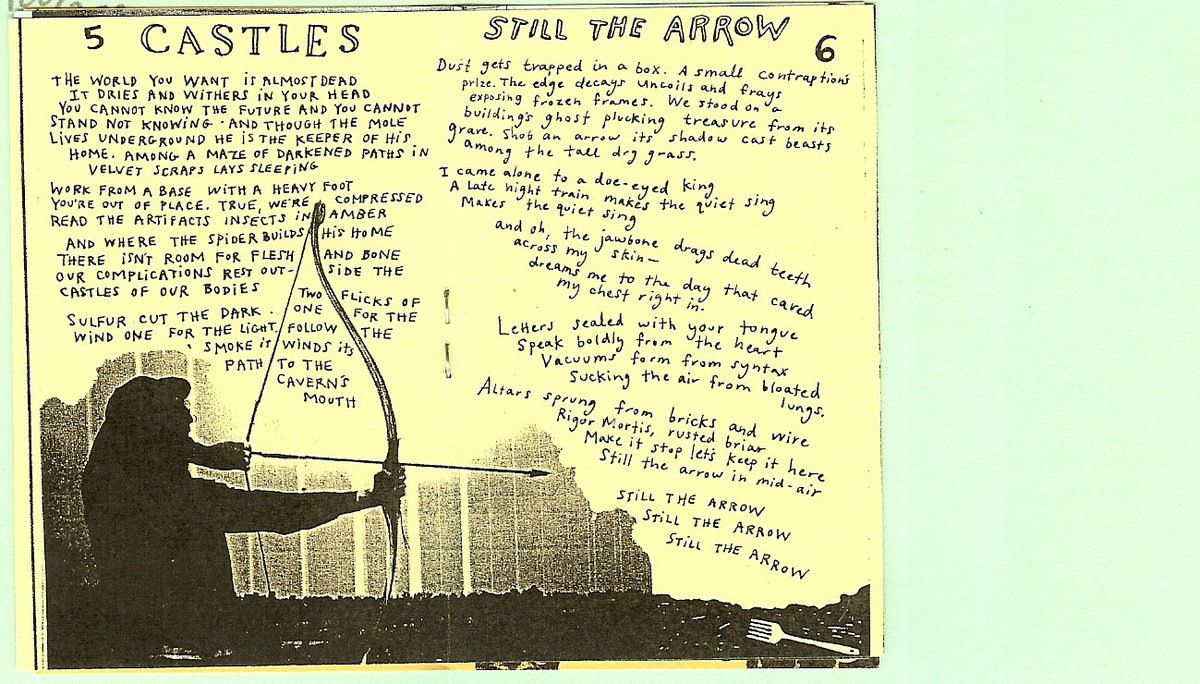 5 CASTLES
THE WORLD YOU WANT IS ALMOST DEAD
IT DRIES AND WITHERS IN YOUR HEAD
YOU CANNOT KNOW THE FUTURE AND YOU CANNOT
STAND NOT KNOWING · AND THOUGH THE MOLE
LIVES UNDERGROUND HE IS THE KEEPER OF HIS
HOME. AMONG A MAZE OF DARKENED PATHS IN
VELVET SCRAPS LAYS SLEEPING
WORK FROM A BASE WITH A HEAVY FOOT
YOU'RE OUT OF PLACE. TRUE, WE'RE COMPRESSED
READ THE ARTIFACTS INSECTS IN AMBER
AND WHERE THE SPIDER BUILDS HIS HOME
THERE ISN'T ROOM FOR FLESH AND BONE
OUR COMPLICATIONS REST OUT- SIDE THE
CASTLES OF OUR BODIES
TWO FLICKS OF
SULFUR CUT THE DARK. ONE FOR THE
WIND ONE FOR THE LIGHT. FOLLOW THE
SMOKE IT WINDS ITS
PATH TO THE
CAVERN'S
MOUTH
STILL THE ARROW
6
Dust gets trapped in a box. A small contraption's
prize. The edge decays uncoils and frays
exposing frozen frames. We stood on a
building's ghost plucking treasure from its
grave. Shot an arrow its' shadow cast beasts
among the tall dry grass.
I came alone to a doe-eyed king
A late night train makes the quiet sing
Makes the quiet sing
and oh, the jawbone drags dead teeth
across my skin—
dreams me to the day that cared
my chest right in.
Letters sealed with your tongue
Speak boldly from the heart
Vacuums form from syntax
Sucking the air from bloated
lungs.
Altars sprung from bricks and wire
Rigor Mortis, rusted briar
Make it stop let's keep it here
Still the arrow in mid-air
STILL THE ARROW
STILL THE ARROW
STILL THE ARROW